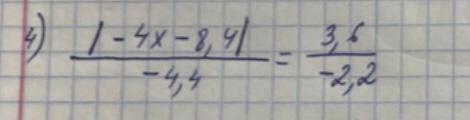 4) |-4x-8,4| / -4,4 = 3,6 / -2,2